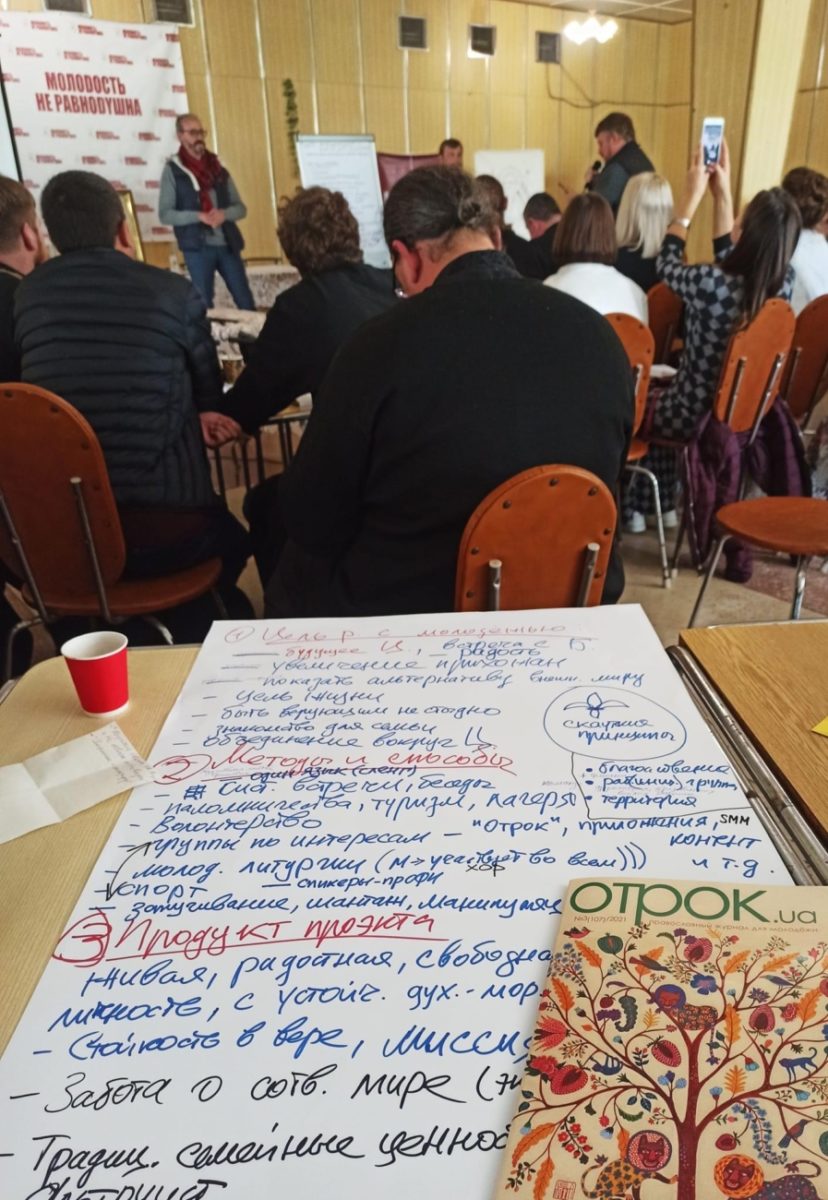 МОЛОДОСТЬ
НЕ РАВНОДУШНА
① Цель р с молодежью
— будущее Ц, встреча с Б.
— радость
— увеличение прихожан
— показать альтернативу внешн. миру
— цель жизни
— быть верующим не стыдно
— знакомство для семьи
— объединение вокруг Ц
скаутские
принципы
② Методы и способы
— один язык (сленг)
встречи, беседы
• разновозр. группы
• территория
— паломничества, туризм, лагеря
— Волонтерство
— группы по интересам — "Отрок", приложения, SMM
контент
и т.д.
— молод. литургии (м→участвуют во всем)))
хор
— спорт
— спикеры-профи
— запугивание, шантаж, манипуляц
③ Продукт проэкта
живая, радостная, свободна
личность, с устойч. дух.-мор
— Стойкость в вере, мисси
— Забота о сотв. мире
— Традиц. семейные ценно
ОТРОК.ua
№3(107)/2021
православный журнал для молодёжи